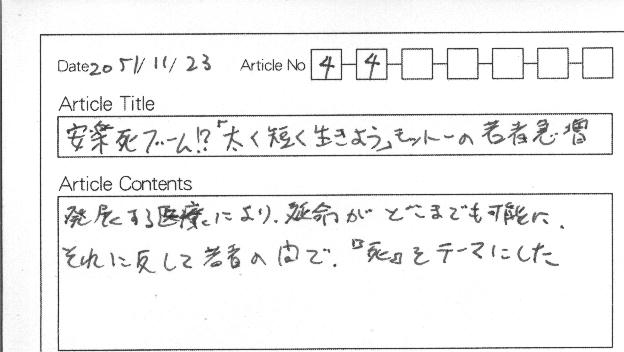 Date 2051/11/23 Article No 4 4
Article Title
安楽死ブーム!?「太く短く生きよう」モットーの若者急増
Article Contents
発展する医療により、延命がどこまでも可能に、
それに反して若者の間で、『死』をテーマにした